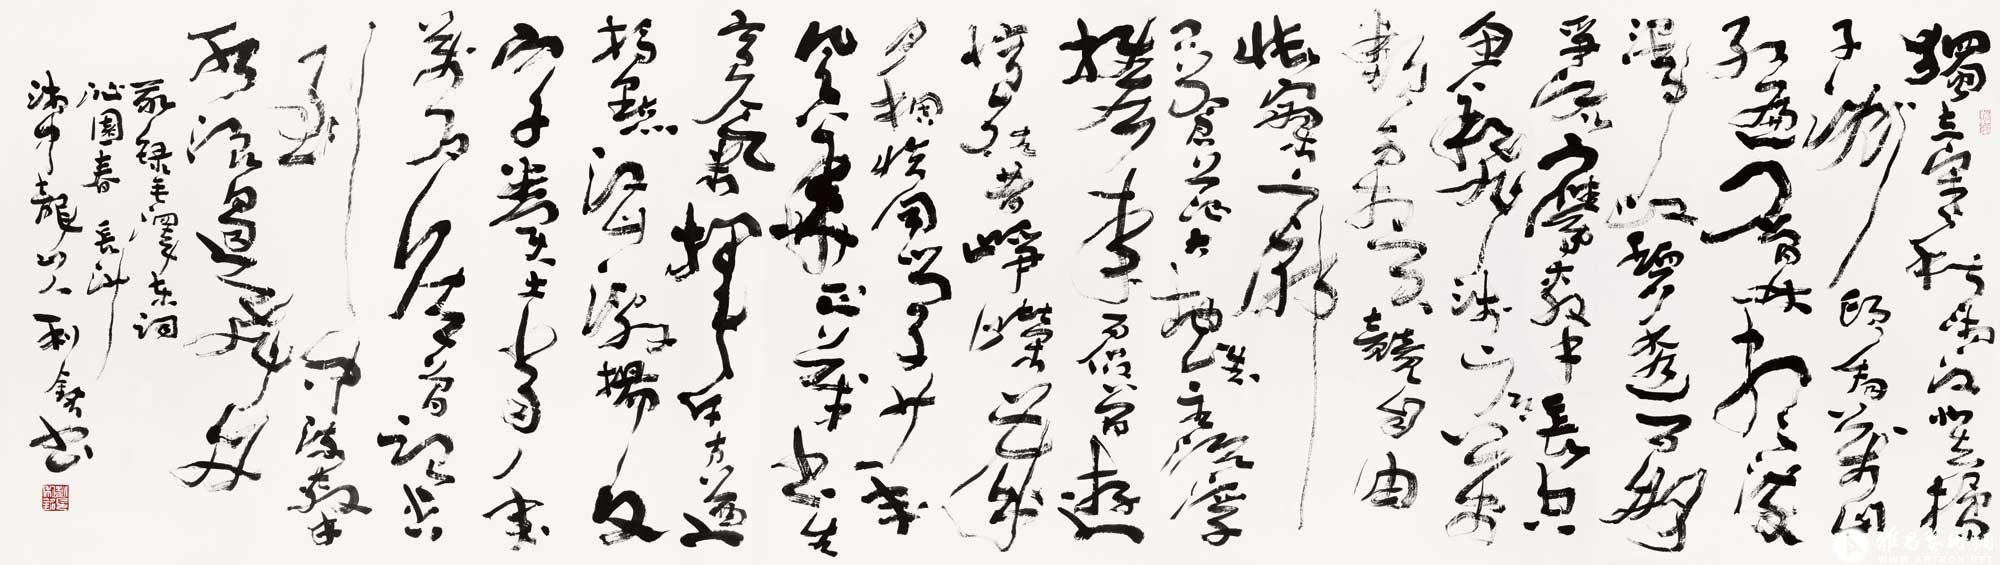 獨立寒秋湘江北去橘
子洲頭看萬山
紅遍層林盡染
漫江碧透百舸
爭流鷹擊長空
魚翔淺底萬
類霜天競自由
悵寥廓
問蒼茫大地誰主沉浮
攜來百侶曾遊
憶往昔崢嶸歲
月稠恰同學少年
風華正茂書生
意氣揮斥方遒
指點江山激揚文
字糞土當年
萬戶侯曾記否
到中流擊
水浪遏飛舟
敬錄毛澤東詞
沁園春 長沙
龍山人 利 書
雅昌艺术网
WWW.ARTRON.NET